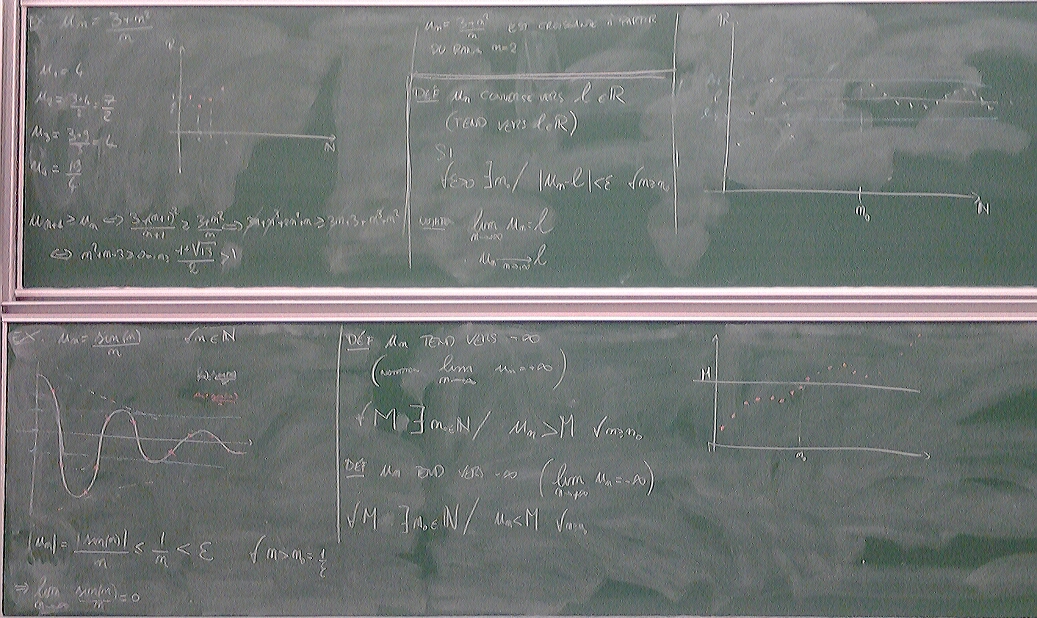 EX. Un = 3+n²/n
U₁ = 4
U₂ = 3+4/2 = 7/2
U₃ = 3+9/3 = 4
U₄ = 19/4
R
N
Un+1 ≥ Un ⇔ 3+(n+1)²/n+1 ≥ 3+n²/n ⇔
⇔ n²+n-3 ≥ 0 -1+√13/2 > 1
Un = 3+n²/n EST CROISSANTE À PARTIR
DU RANG n=2
DÉF Un CONVERGE VERS l∈R
(TEND VERS l∈R)
SI
∀ε>0 ∃n₀ / |Un-l|<ε ∀n≥n₀
lim n→+∞ Un = l
Un n→+∞ → l
R
l
n₀
N
EX. Un = sin(n)/n ∀n∈N
|Un| = |sin(n)|/n ≤ 1/n < ε ∀n>n₀=1/ε
⇒ lim n→∞ sin(n)/n = 0
DÉF Un TEND VERS +∞
(NOTATION lim n→∞ Un = +∞)
∀M ∃n₀∈N / Un > M ∀n≥n₀
DÉF Un TEND VERS -∞ (lim n→+∞ Un = -∞)
∀M ∃n₀∈N / Un < M ∀n≥n₀
M
n₀